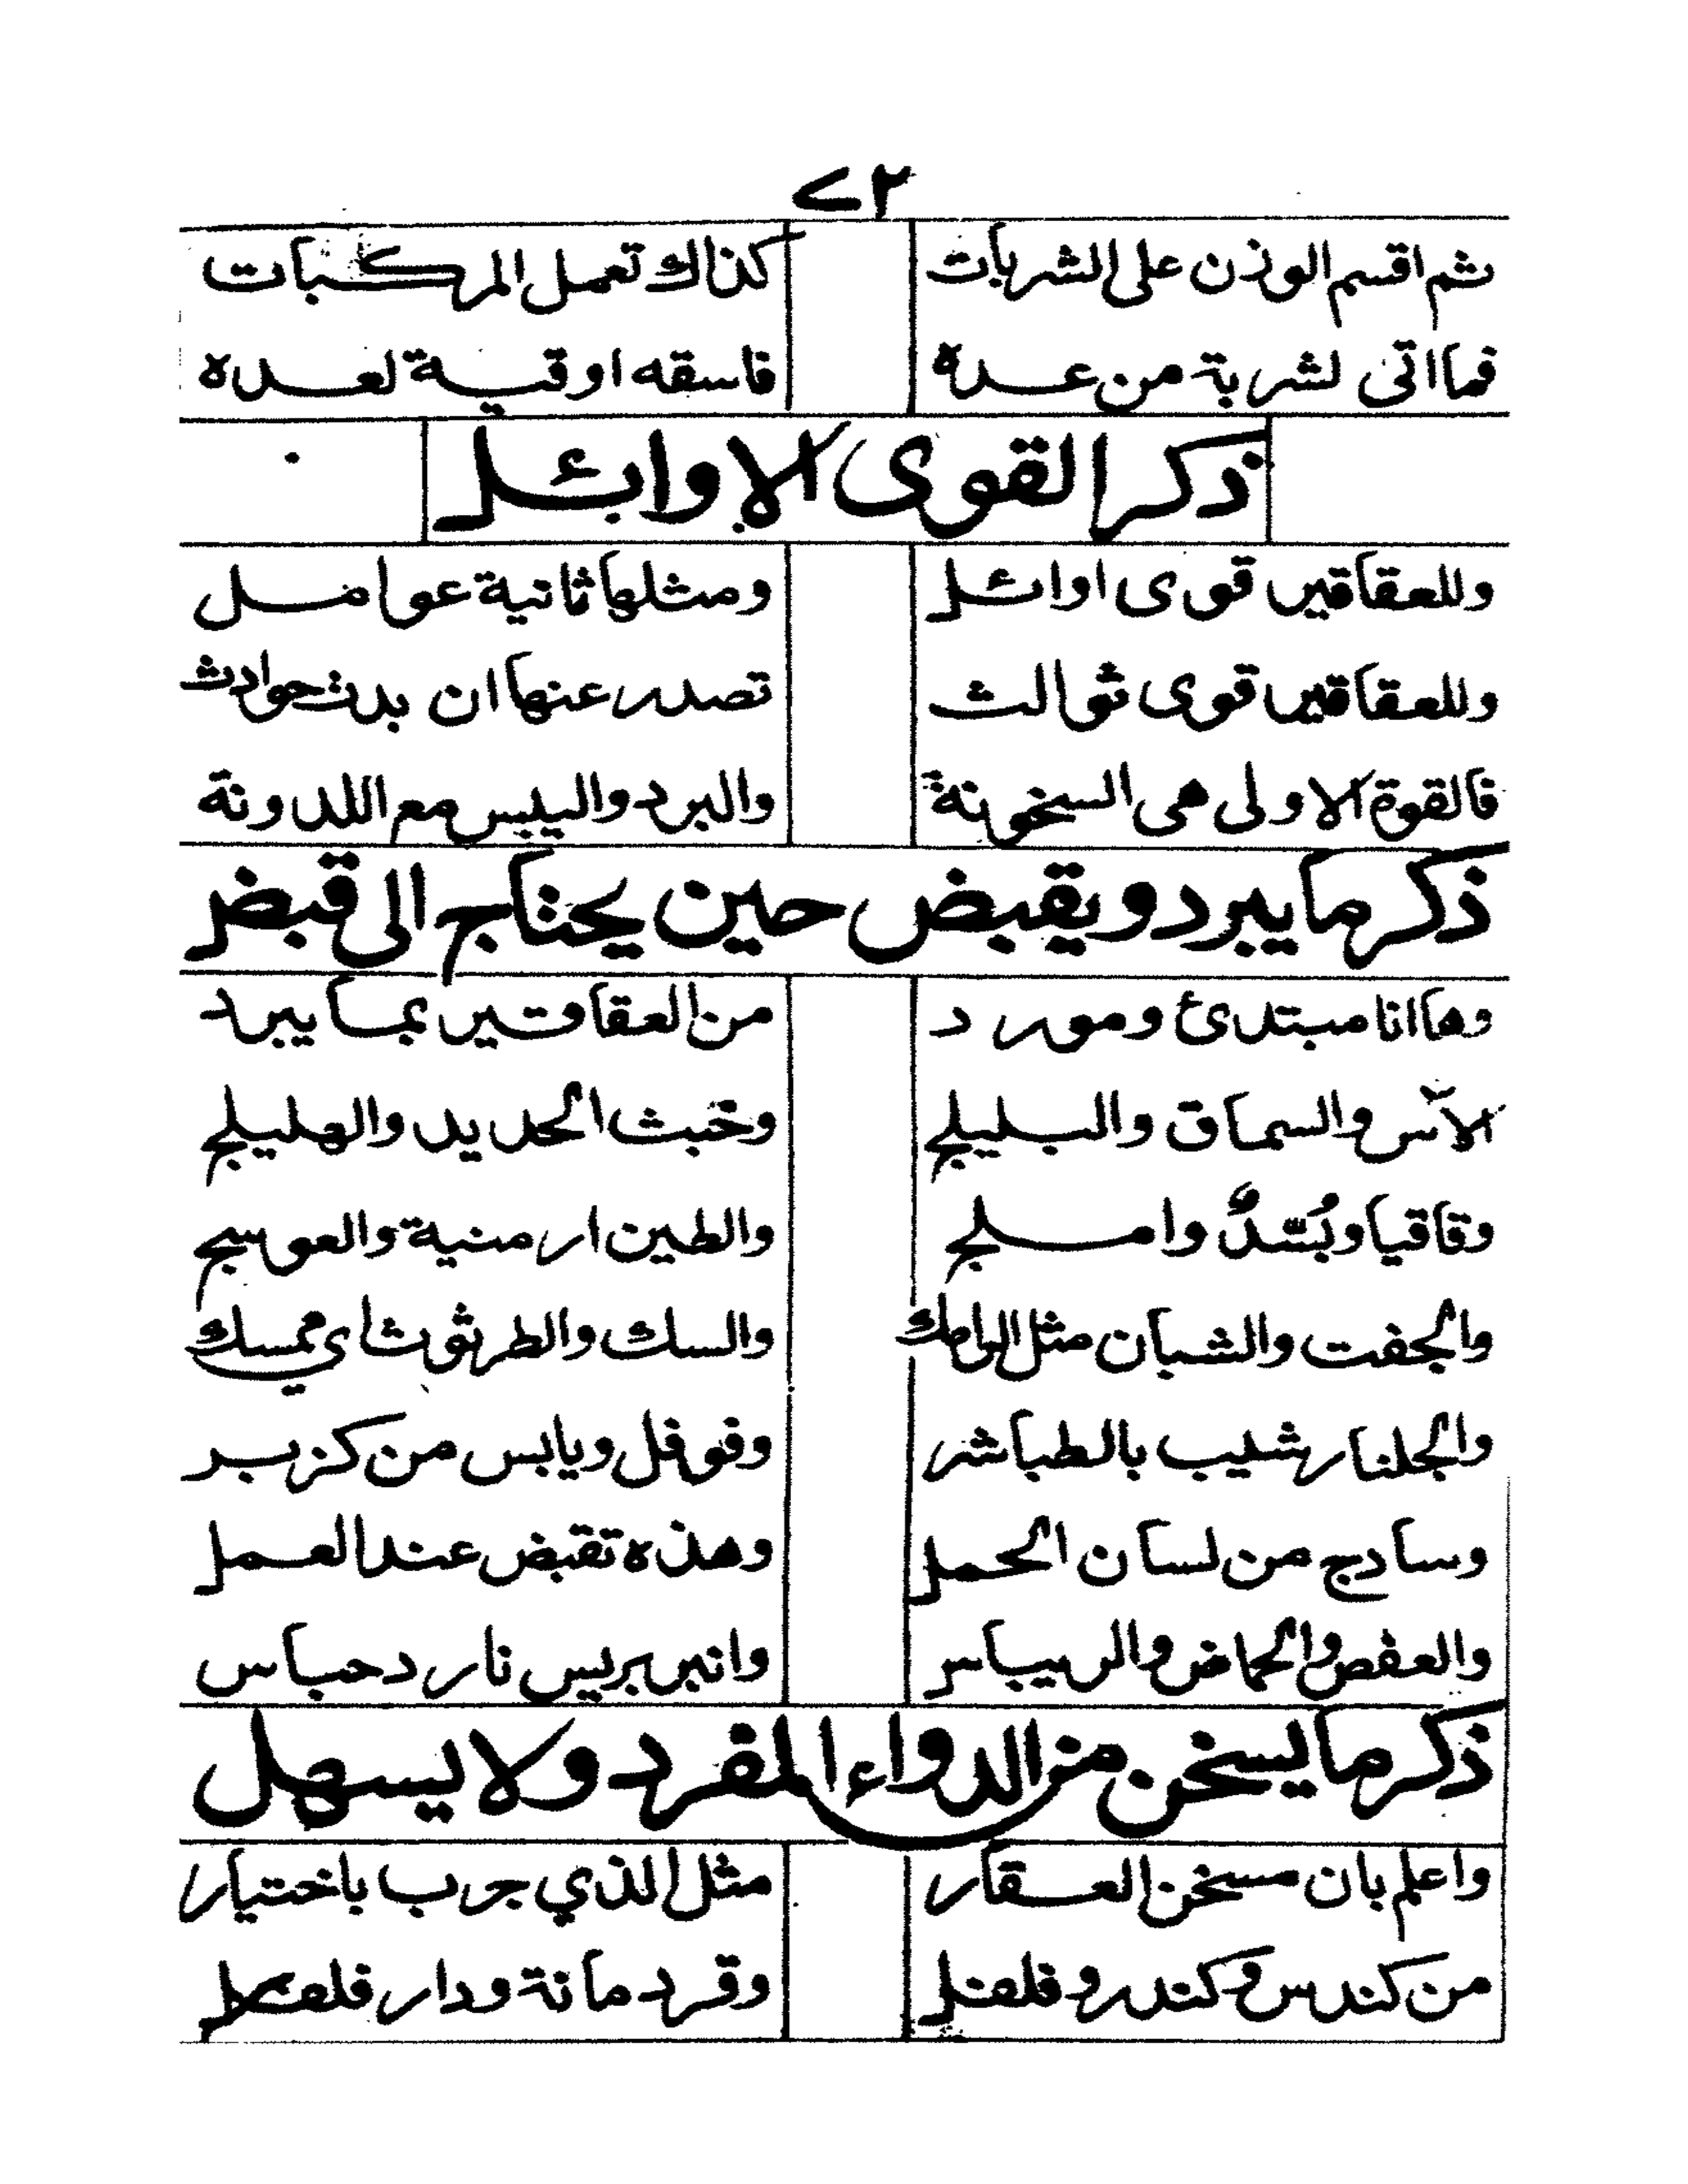 ٧٢
ثم اقسم الوزن على الشربات كذاك تعمل المركبات
فما اتى لشربة من عده فاسقه اوقية لعده
ذكر القوى الاوائل
وللعقاقير قوى اوائل ومثلها ثانية عوامل
وللعقاقير قوى ثوالث تصدر عنها ان بدت حوادث
فالقوة الاولى هى السخونة والبرد واليبس مع اللدونة
ذكر ما يبرد ويقبض حين يحتاج الى قبض
وها انا مبتدئ ومورد من العقاقير بما يبرد
الآس والسماق والبليلج وخبث الحديد والهليلج
وقاقيا وبُسّدٌ واملج والطين ارمنية والعوسج
والجفت والشبان مثل الرامك والسك والطرثوث اى ممسك
والجلنار شيب بالطباشر وفوفل ويابس من كزبر
وسادج من لسان الحمل وهذه تقبض عند العمل
والعفص والحماض والريباس وانبربريس نارد حباس
ذكر ما يسخن من الدواء المفرد ولا يسهل
واعلم بان مسخن العقار مثل الذي جرب باختيار
من كندس وكندر وفلفل وقردمانة ودار فلفل